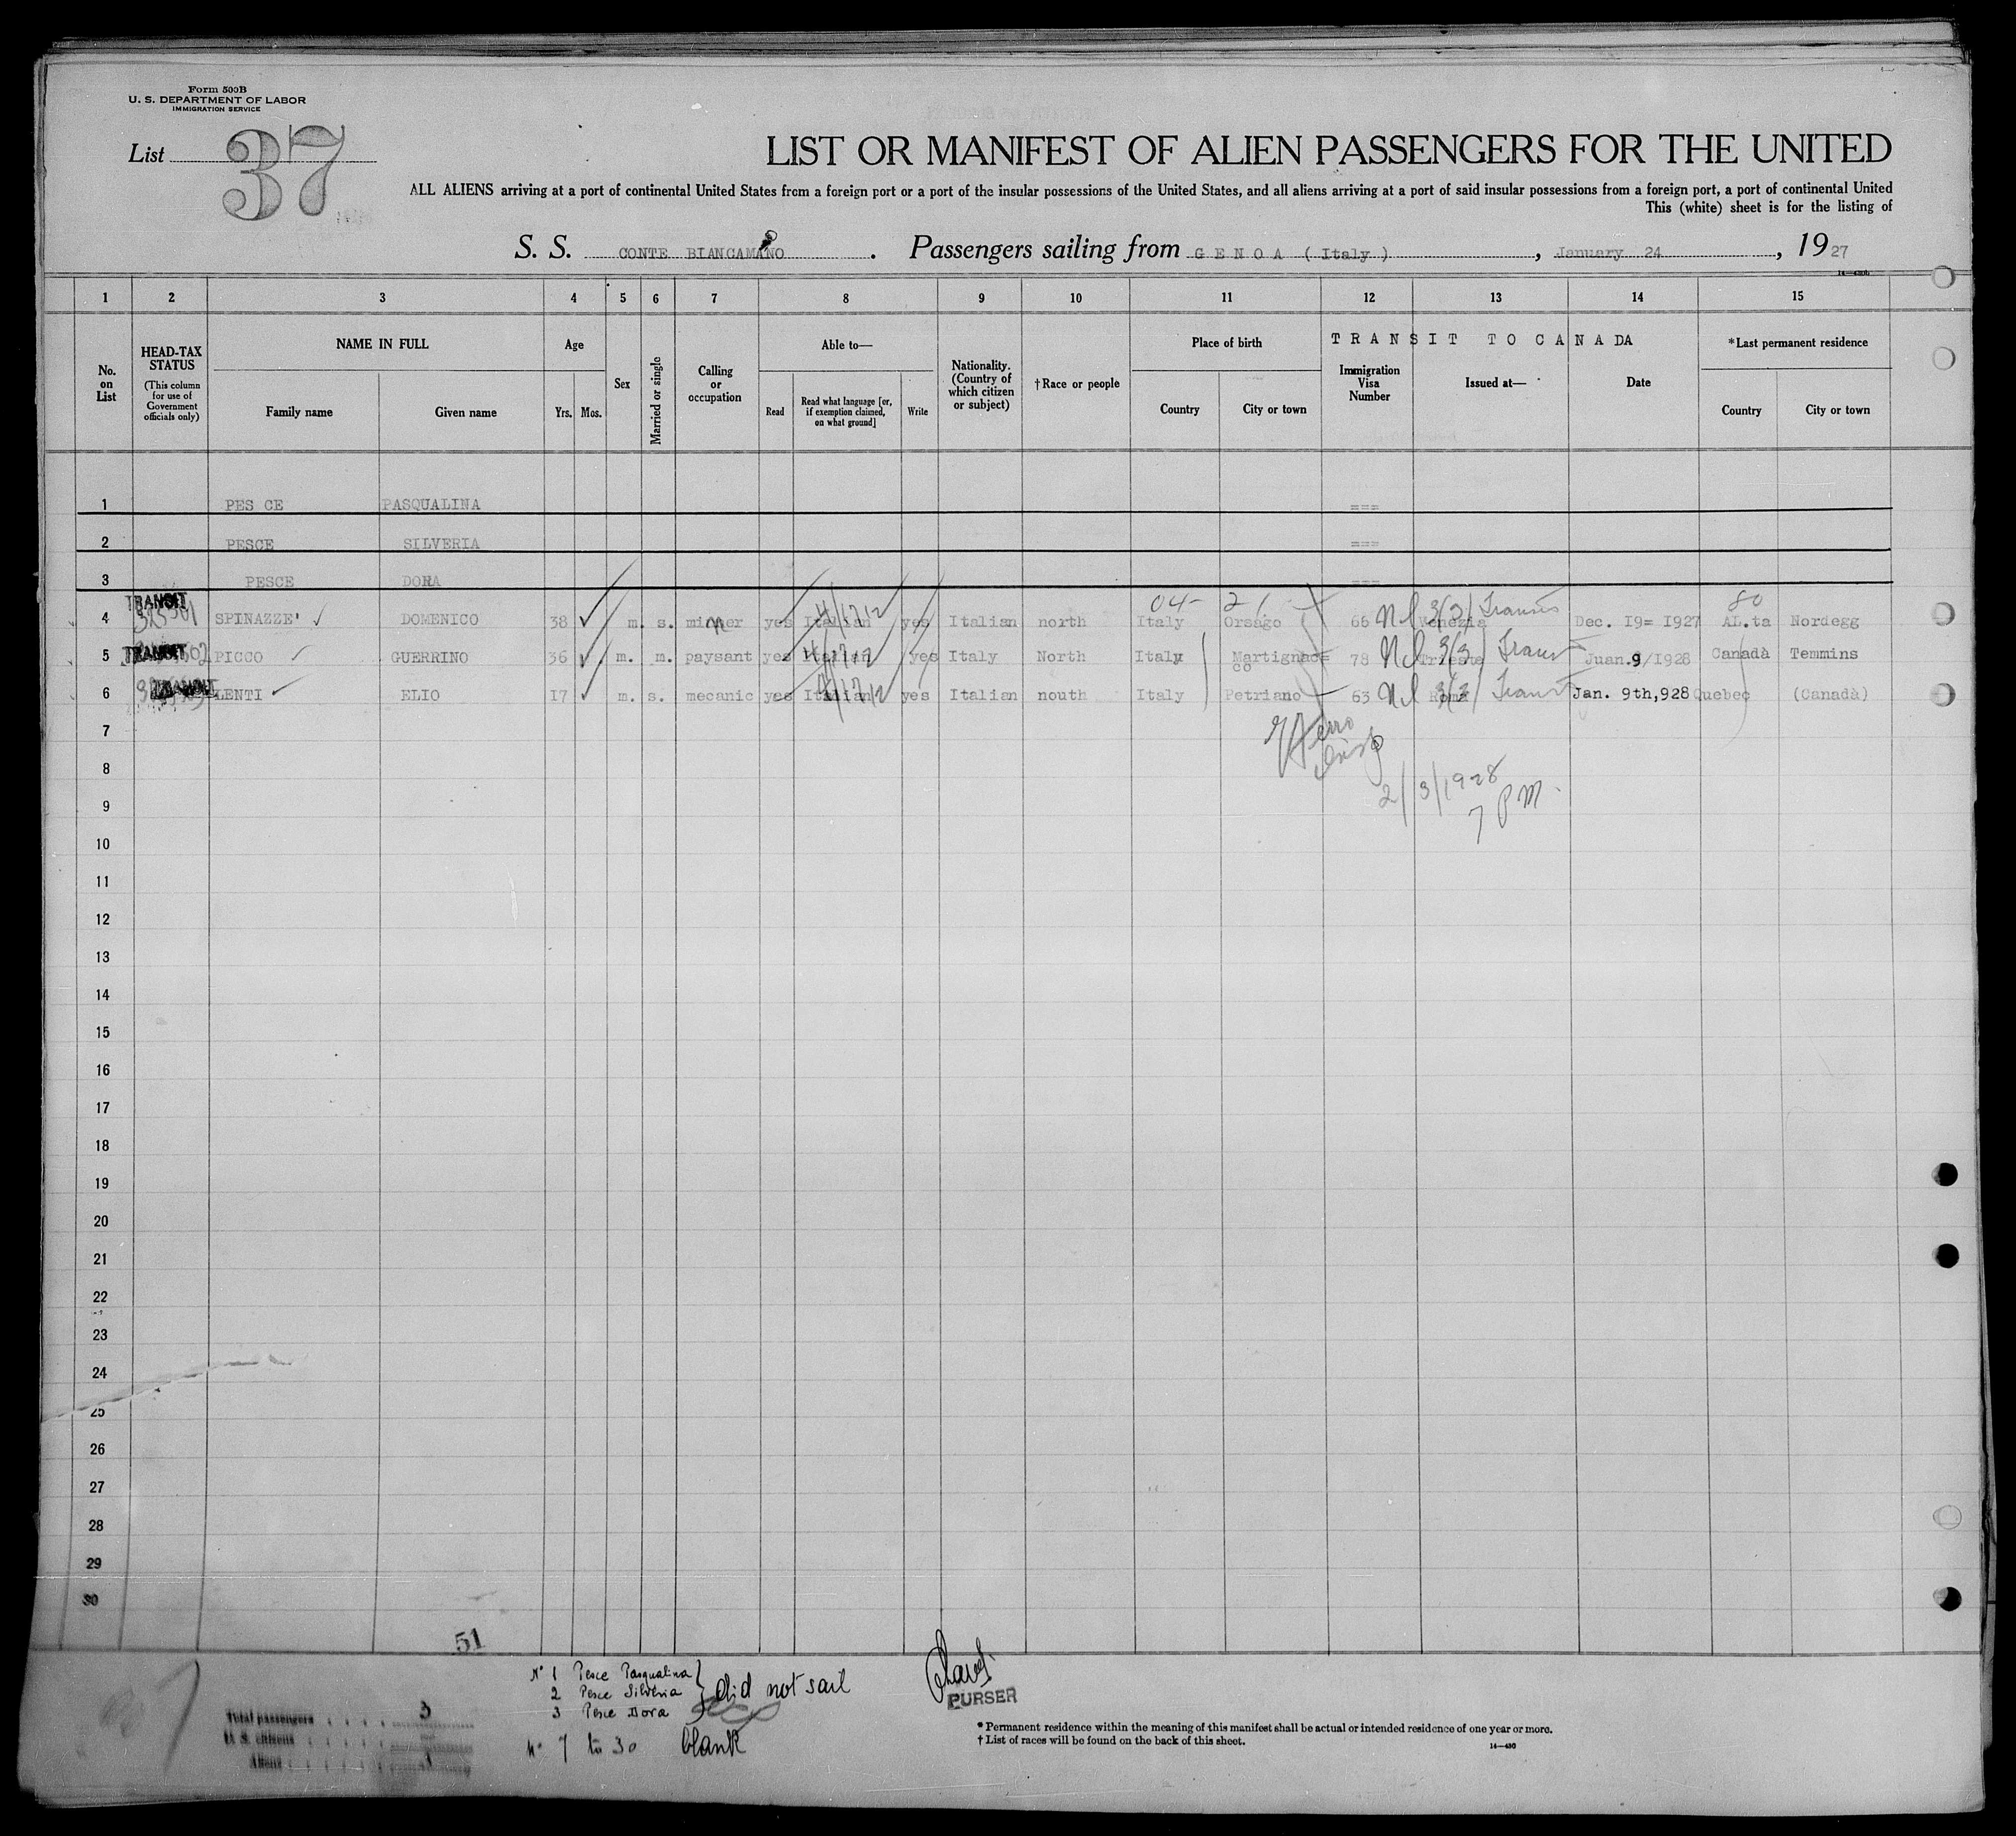 Form 500B
U. S. DEPARTMENT OF LABOR
IMMIGRATION SERVICE
List 37
LIST OR MANIFEST OF ALIEN PASSENGERS FOR THE UNITED
ALL ALIENS arriving at a port of continental United States from a foreign port or a port of the insular possessions of the United States, and all aliens arriving at a port of said insular possessions from a foreign port, a port of continental United
This (white) sheet is for the listing of
S. S. CONTE BIANCAMANO . Passengers sailing from GENOA (Italy) , January 24 , 1927
1 2 3 4 5 6 7 8 9 10 11 12 13 14 15
No. on List
HEAD-TAX STATUS (This column for use of Government officials only)
NAME IN FULL
Family name Given name
Age
Yrs. Mos.
Sex
Married or single
Calling or occupation
Able to—
Read Read what language [or, if exemption claimed, on what ground] Write
Nationality. (Country of which citizen or subject)
†Race or people
Place of birth
Country City or town
TRANSIT TO CANADA
Immigration Visa Number
Issued at—
Date
*Last permanent residence
Country City or town
1 PES CE PASQUALINA ===
2 PESCE SILVERIA ===
3 PESCE DORA ===
04- 21 80
4 TRANSIT SPINAZZE' DOMENICO 38 m. s. miner yes Italian yes Italian north Italy Orsago 66 Venezia Dec. 19= 1927 AL.ta Nordegg
5 TRANSIT PICCO GUERRINO 36 m. m. paysant yes Italian yes Italy North Italy Martignac= co 78 Trieste Juan.9/1928 Canadà Temmins
6 TRANSIT LENTI ELIO 17 m. s. mecanic yes Italian yes Italian nouth Italy Petriano 63 Roma Jan. 9th,928 Quebec (Canadà)
7
8
2/3/1928
9
7 PM.
10
11
12
13
14
15
16
17
18
19
20
21
22
23
24
25
26
27
28
29
30
51
N° 1 Pesce Pasqualina
2 Pesce Silveria
3 Pesce Dora
did not sail
N° 7 to 30 blank
PURSER
Total passengers 3
U. S. citizens
Aliens 3
* Permanent residence within the meaning of this manifest shall be actual or intended residence of one year or more.
† List of races will be found on the back of this sheet.
14—430